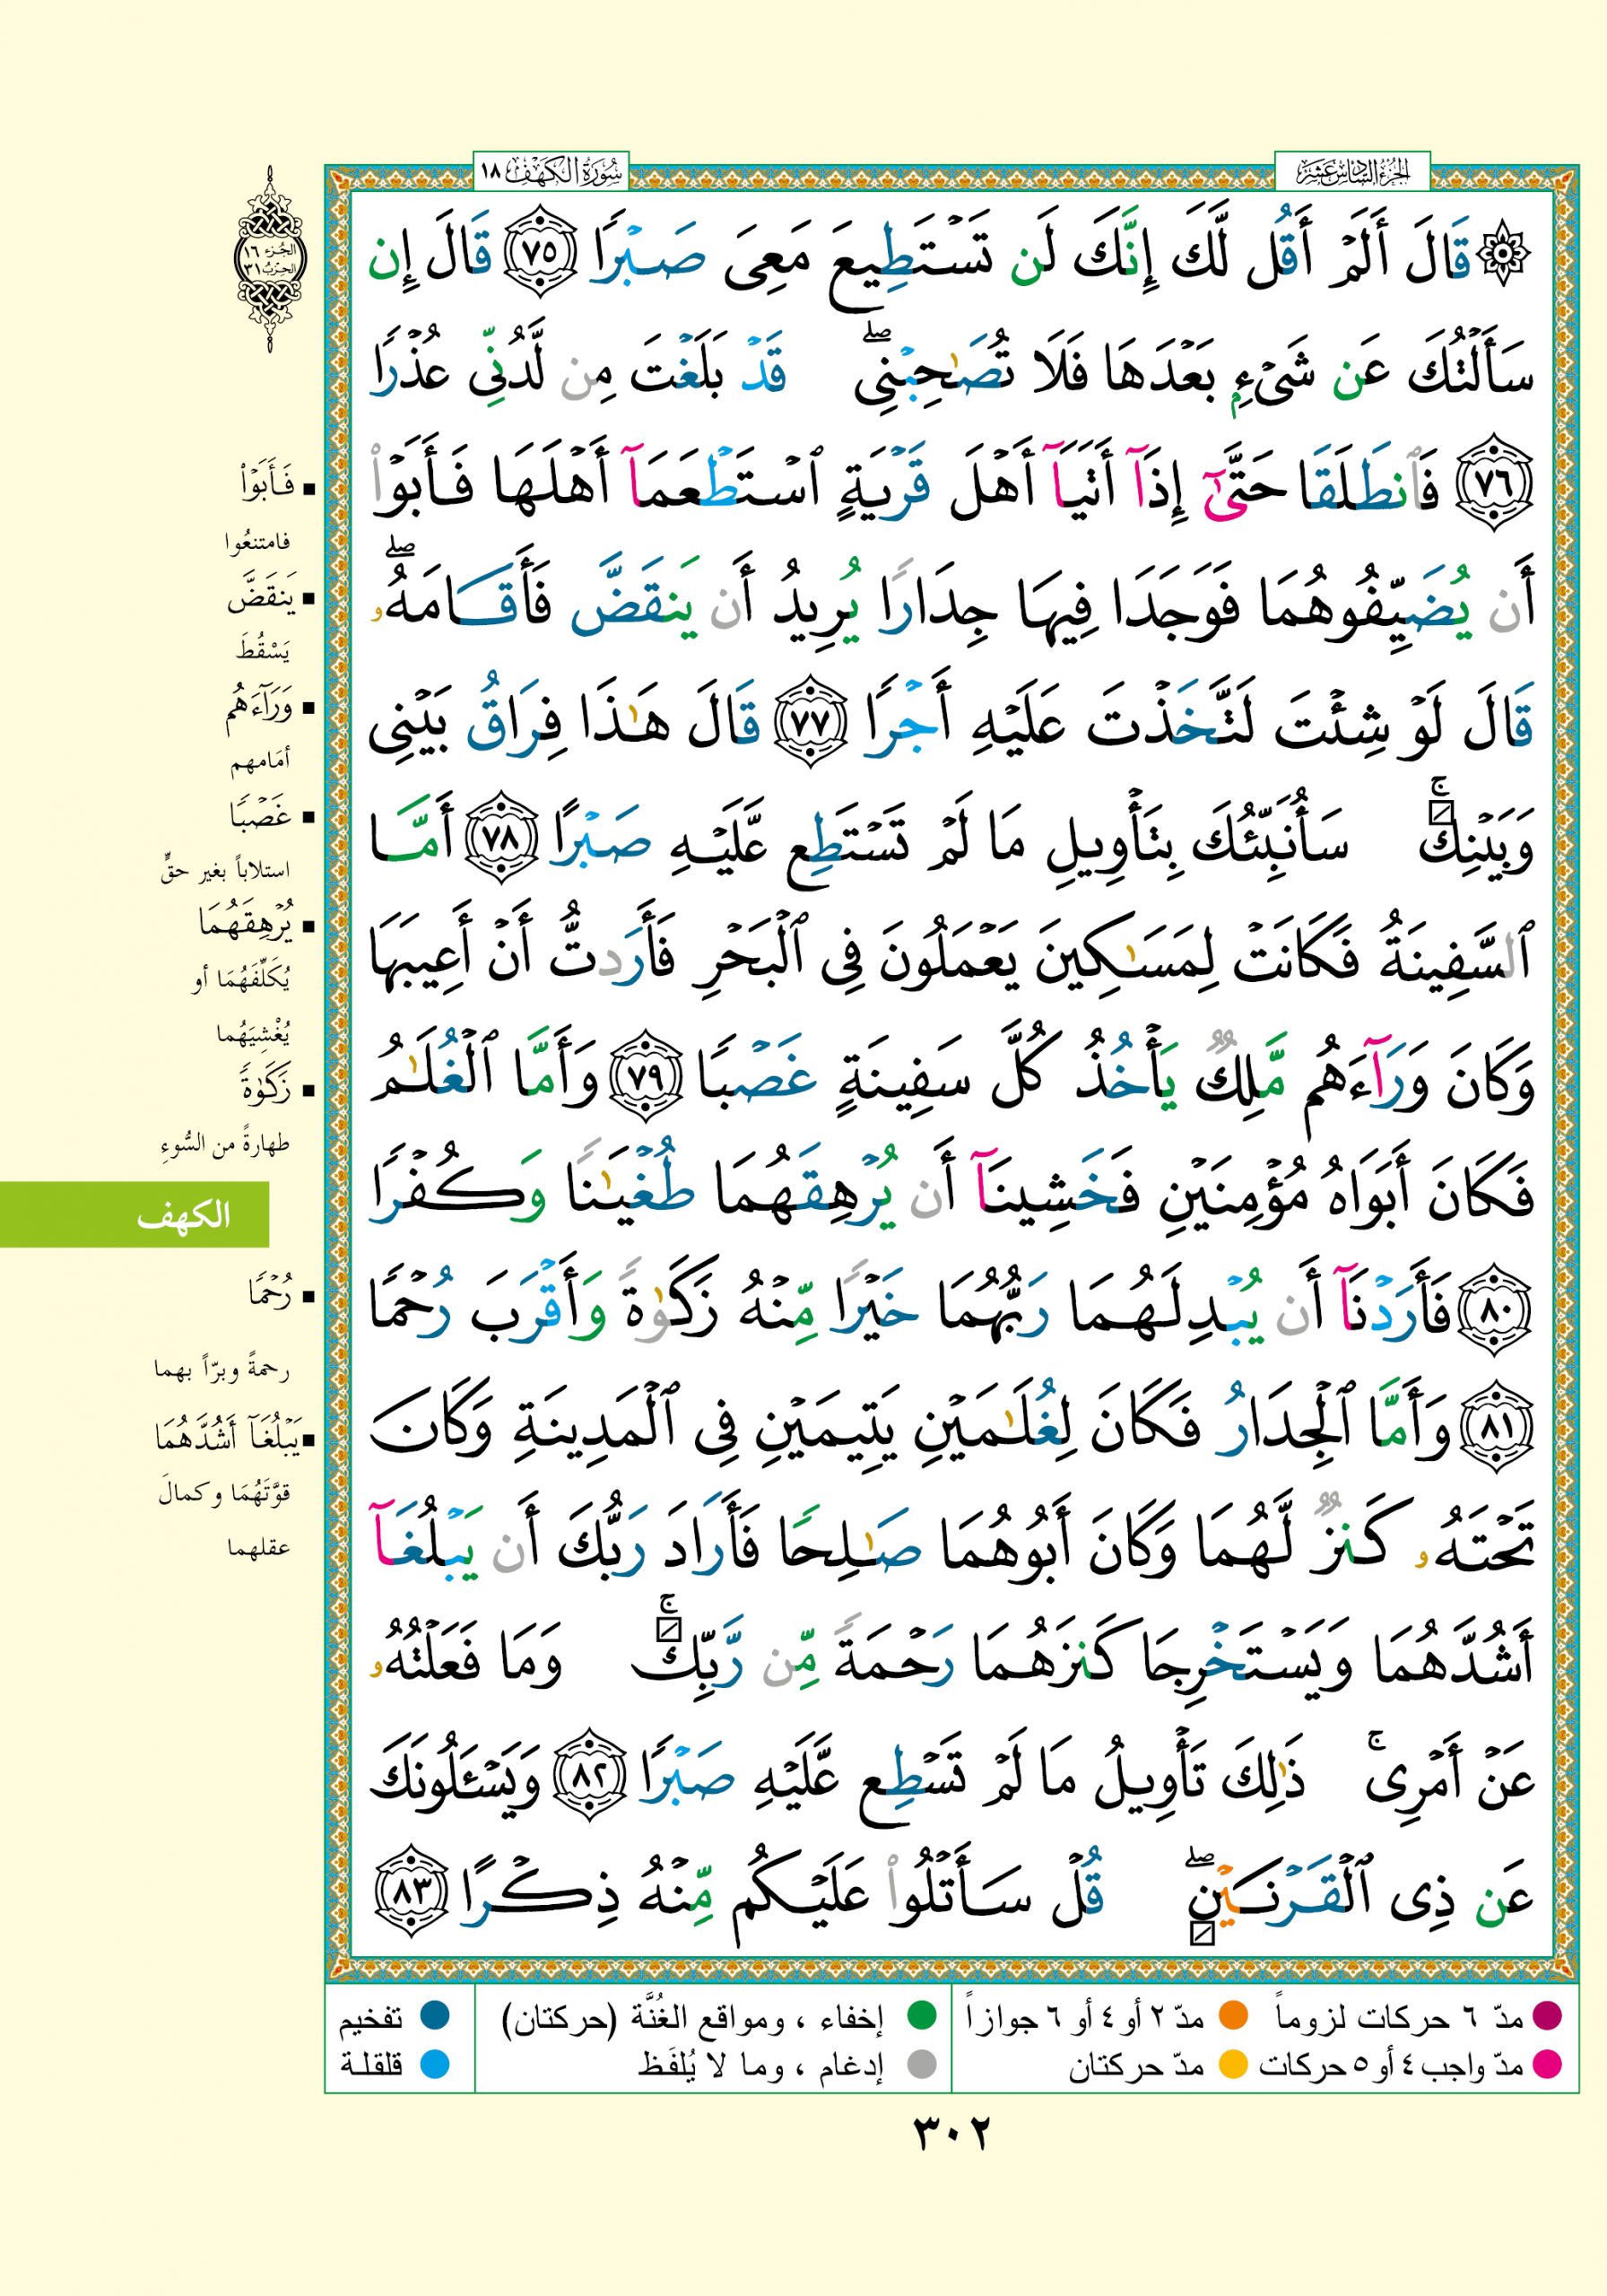 الجزء السادس عشر
سورة الكهف ١٨
۞ قَالَ أَلَمۡ أَقُل لَّكَ إِنَّكَ لَن تَسۡتَطِيعَ مَعِىَ صَبۡرًا ٧٥ قَالَ إِن
سَأَلۡتُكَ عَن شَىۡءِۭ بَعۡدَهَا فَلَا تُصَٰحِبۡنِىۖ قَدۡ بَلَغۡتَ مِن لَّدُنِّى عُذۡرًا
٧٦ فَٱنطَلَقَا حَتَّىٰٓ إِذَآ أَتَيَآ أَهۡلَ قَرۡيَةٍ ٱسۡتَطۡعَمَآ أَهۡلَهَا فَأَبَوۡاْ
أَن يُضَيِّفُوهُمَا فَوَجَدَا فِيهَا جِدَارًا يُرِيدُ أَن يَنقَضَّ فَأَقَامَهُۥۖ
قَالَ لَوۡ شِئۡتَ لَتَّخَذۡتَ عَلَيۡهِ أَجۡرًا ٧٧ قَالَ هَٰذَا فِرَاقُ بَيۡنِى
وَبَيۡنِكَۚ سَأُنَبِّئُكَ بِتَأۡوِيلِ مَا لَمۡ تَسۡتَطِع عَّلَيۡهِ صَبۡرًا ٧٨ أَمَّا
ٱلسَّفِينَةُ فَكَانَتۡ لِمَسَٰكِينَ يَعۡمَلُونَ فِى ٱلۡبَحۡرِ فَأَرَدتُّ أَنۡ أَعِيبَهَا
وَكَانَ وَرَآءَهُم مَّلِكٌ يَأۡخُذُ كُلَّ سَفِينَةٍ غَصۡبًا ٧٩ وَأَمَّا ٱلۡغُلَٰمُ
فَكَانَ أَبَوَاهُ مُؤۡمِنَيۡنِ فَخَشِينَآ أَن يُرۡهِقَهُمَا طُغۡيَٰنًا وَكُفۡرًا
٨٠ فَأَرَدۡنَآ أَن يُبۡدِلَهُمَا رَبُّهُمَا خَيۡرًا مِّنۡهُ زَكَوٰةً وَأَقۡرَبَ رُحۡمًا
٨١ وَأَمَّا ٱلۡجِدَارُ فَكَانَ لِغُلَٰمَيۡنِ يَتِيمَيۡنِ فِى ٱلۡمَدِينَةِ وَكَانَ
تَحۡتَهُۥ كَنزٌ لَّهُمَا وَكَانَ أَبُوهُمَا صَٰلِحًا فَأَرَادَ رَبُّكَ أَن يَبۡلُغَآ
أَشُدَّهُمَا وَيَسۡتَخۡرِجَا كَنزَهُمَا رَحۡمَةً مِّن رَّبِّكَۚ وَمَا فَعَلۡتُهُۥ
عَنۡ أَمۡرِىۚ ذَٰلِكَ تَأۡوِيلُ مَا لَمۡ تَسۡطِع عَّلَيۡهِ صَبۡرًا ٨٢ وَيَسۡـَٔلُونَكَ
عَن ذِى ٱلۡقَرۡنَيۡنِۖ قُلۡ سَأَتۡلُواْ عَلَيۡكُم مِّنۡهُ ذِكۡرًا ٨٣
الجزء ١٦
الحزب ٣١
▪ فَأَبَوۡاْ
فامتنعُوا
▪ يَنقَضَّ
يَسْقُطَ
▪ وَرَآءَهُم
أمَامهم
▪ غَصۡبًا
استلاباً بغير حقٍّ
▪ يُرۡهِقَهُمَا
يُكَلِّفَهُمَا أو
يُغْشِيَهُما
▪ زَكَوٰةً
طهارةً من السُّوءِ
الكهف
▪ رُحۡمًا
رحمةً وبرّاً بهما
▪ يَبۡلُغَآ أَشُدَّهُمَا
قوَّتَهُمَا وكمالَ
عقلهما
مدّ ٦ حركات لزوماً مدّ ٢ أو ٤ أو ٦ جوازاً إخفاء ، ومواقع الغُنَّة (حركتان) تفخيم
مدّ واجب ٤ أو ٥ حركات مدّ حركتان إدغام ، وما لا يُلفَظ قلقلة
٣٠٢